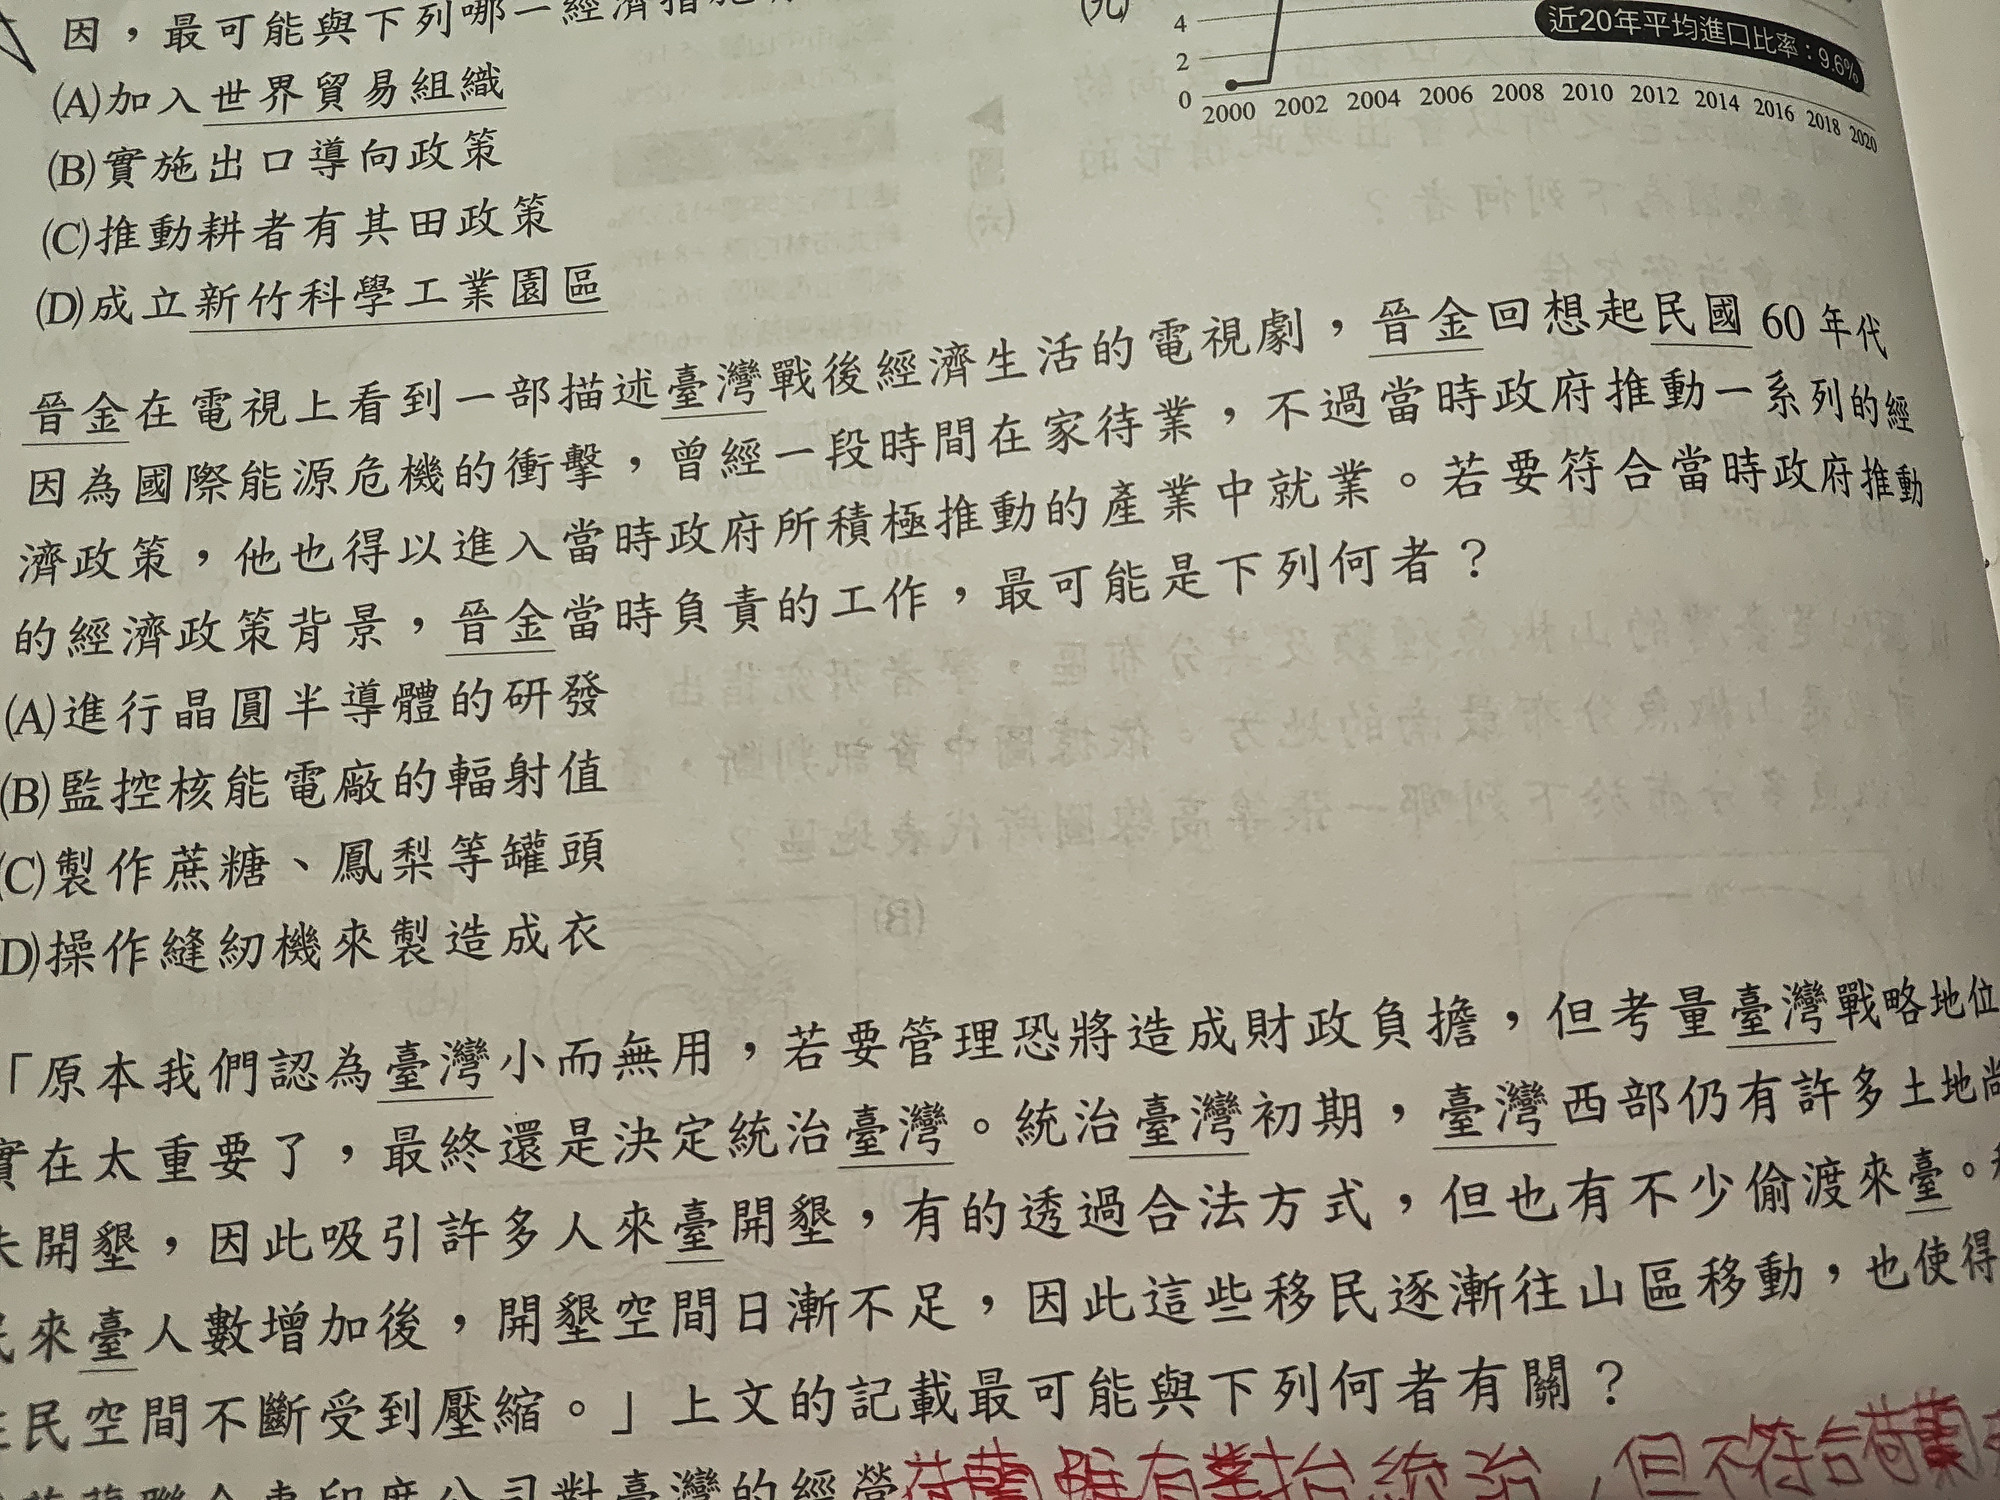 因，最可能與下列哪一經濟措施
(A)加入世界貿易組織
(B)實施出口導向政策
(C)推動耕者有其田政策
(D)成立新竹科學工業園區
(元)
4
2
0
近20年平均進口比率：9.6%
2000 2002 2004 2006 2008 2010 2012 2014 2016 2018 2020
晉金在電視上看到一部描述臺灣戰後經濟生活的電視劇，晉金回想起民國 60 年代
因為國際能源危機的衝擊，曾經一段時間在家待業，不過當時政府推動一系列的經
濟政策，他也得以進入當時政府所積極推動的產業中就業。若要符合當時政府推動
的經濟政策背景，晉金當時負責的工作，最可能是下列何者？
(A)進行晶圓半導體的研發
(B)監控核能電廠的輻射值
(C)製作蔗糖、鳳梨等罐頭
(D)操作縫紉機來製造成衣
「原本我們認為臺灣小而無用，若要管理恐將造成財政負擔，但考量臺灣戰略地位
實在太重要了，最終還是決定統治臺灣。統治臺灣初期，臺灣西部仍有許多土地尚
未開墾，因此吸引許多人來臺開墾，有的透過合法方式，但也有不少偷渡來臺。
民來臺人數增加後，開墾空間日漸不足，因此這些移民逐漸往山區移動，也使得
住民空間不斷受到壓縮。」上文的記載最可能與下列何者有關？
荷蘭聯合東印度公司對臺灣的經營
荷蘭雖有對台統治，但不符合荷蘭